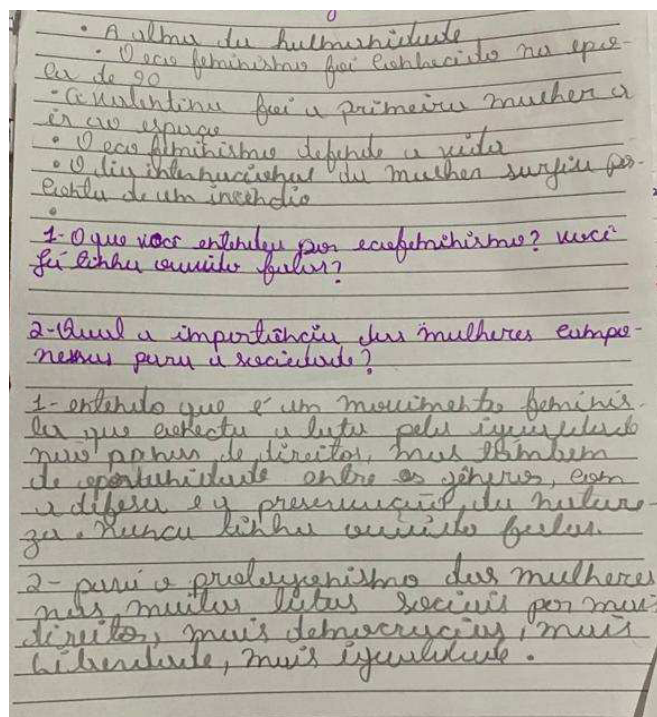 • A alma da hulmanidade
• O eco feminismo foi conhecido na epo-
ca de 90
• a valentina foi a primeira mulher a
ir ao espaço
• O eco feminismo defende a vida
• O dia internacional da mulher surgiu por
conta de um incendio
•
1- O que você entendeu por ecofeminismo? você
já tinha ouvido falar?
2- Qual a importância das mulheres campo-
nesas para a sociedade?
1- entendo que é um movimento feminis-
ta que conecta a luta pela igualdade
não apenas de direitos, mas também
de oportunidade entre os gêneros, com
a defesa e a preservação da nature-
za. Nunca tinha ouvido falar.
2- para o protagonismo das mulheres
nas muitas lutas sociais por mais
direitos, mais democracias, mais
liberdade, mais igualdade.